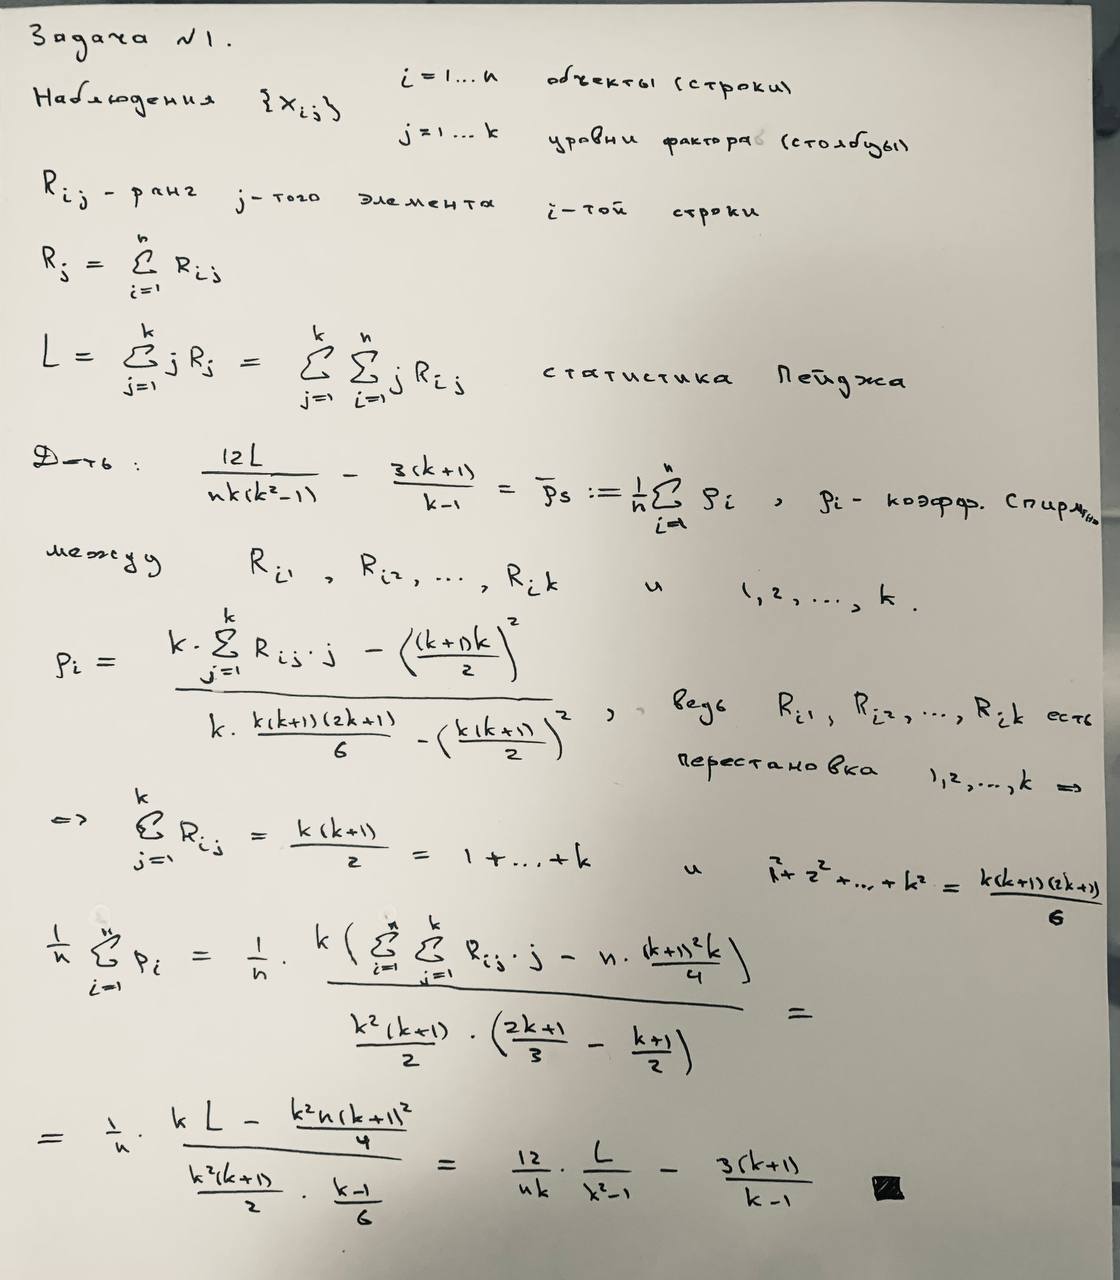 Задача №1.
Наблюдения {x_ij} i = 1...n объекты (строки)
j = 1...k уровни фактора (столбцы)
R_ij - ранг j-того элемента i-той строки
R_j = ∑_{i=1}^{n} R_ij
L = ∑_{j=1}^{k} j R_j = ∑_{j=1}^{k} ∑_{i=1}^{n} j R_ij статистика Пейджа
Д-ть: 12L / (nk(k²-1)) - 3(k+1) / (k-1) = ρ̄_s := 1/n ∑_{i=1}^{n} ρ_i , ρ_i - коэфф. Спирмена
между R_i1, R_i2, ..., R_ik и 1, 2, ..., k.
ρ_i = (k · ∑_{j=1}^{k} R_ij · j - ((k+1)k / 2)²) / (k · k(k+1)(2k+1) / 6 - (k(k+1) / 2)²) , ведь R_i1, R_i2, ..., R_ik есть
перестановка 1, 2, ..., k =>
=> ∑_{j=1}^{k} R_ij = k(k+1) / 2 = 1 + ... + k и 1² + 2² + ... + k² = k(k+1)(2k+1) / 6
1/n ∑_{i=1}^{n} ρ_i = 1/n · k (∑_{i=1}^{n} ∑_{j=1}^{k} R_ij · j - n · (k+1)²k / 4) / (k²(k+1) / 2 · ((2k+1) / 3 - (k+1) / 2)) =
= 1/n · (k L - k²n(k+1)² / 4) / (k²(k+1) / 2 · (k-1) / 6) = 12 / (nk) · L / (k²-1) - 3(k+1) / (k-1) ■